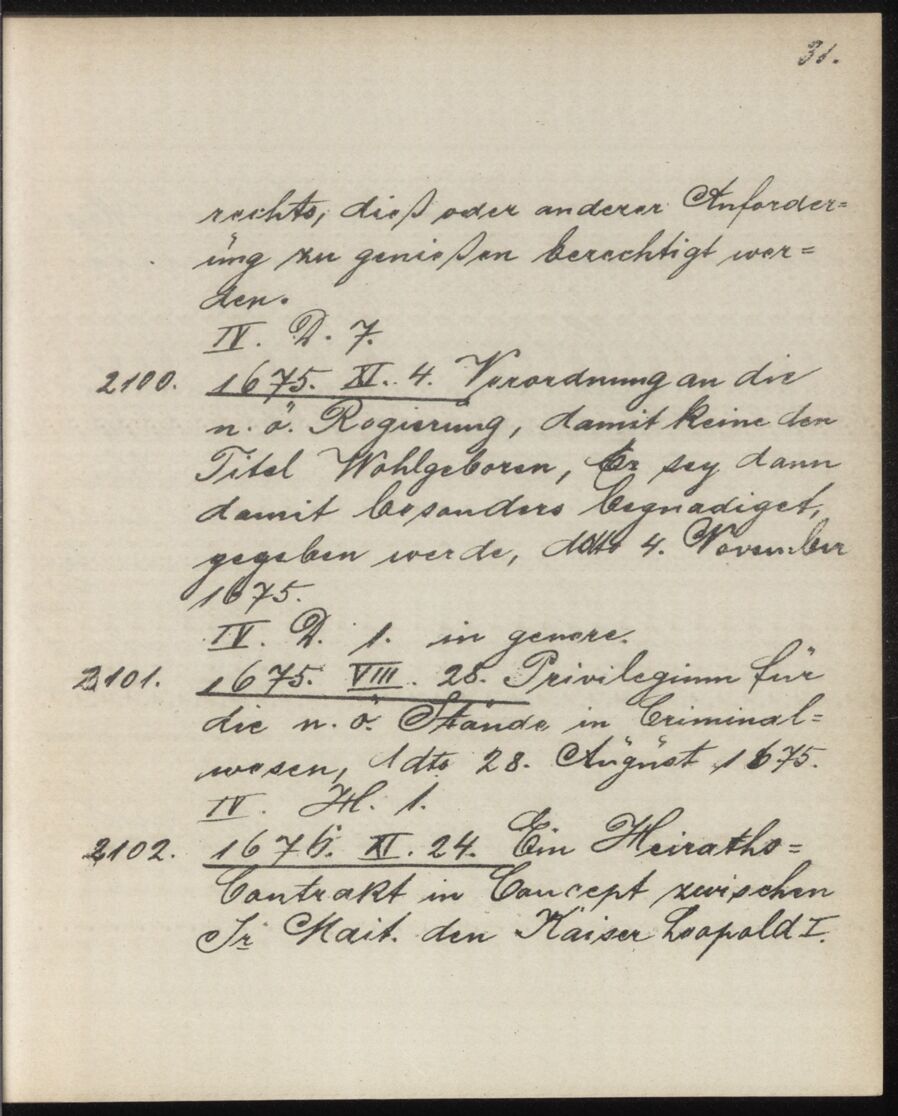 31.
rechts, dieß oder anderer Anforder=
üng zu genießen berechtigt wer=
den.
IV. D. 7.
2100. 1675. XI. 4. Verordnung an die
n. ö. Regierüng, damit keine den
Titel Wohlgeboren, Er sey dann
damit besonders begnadiget,
gegeben werde, ddto 4. November
1675.
IV. D. 1. in genere.
2101. 1675. VIII. 28. Privilegium für
die n. ö. Stände in Criminal=
wesen, ddto 28. Aügüst 1675.
IV. H. 1.
2102. 1676. XI. 24. Ein Heiraths=
Contrakt in Concept zwischen
Sr Mait. den Kaiser Leopold I.